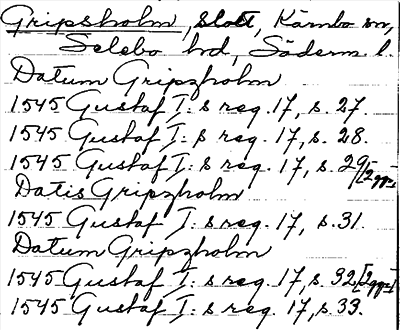 Gripsholm, slott, Kärnbo sn,
Selebo hd, Söderm. l.
Datum Gripzholm
1545 Gustaf I: s reg. 17, s. 27.
1545 Gustaf I: s reg. 17, s. 28.
1545 Gustaf I: s reg. 17, s. 29 [2 ggr]
Datis Gripzholm
1545 Gustaf I: s reg. 17, s. 31.
Datum Gripzholm
1545 Gustaf I: s reg. 17, s. 32 [2 ggr]
1545 Gustaf I: s reg. 17, s. 33.